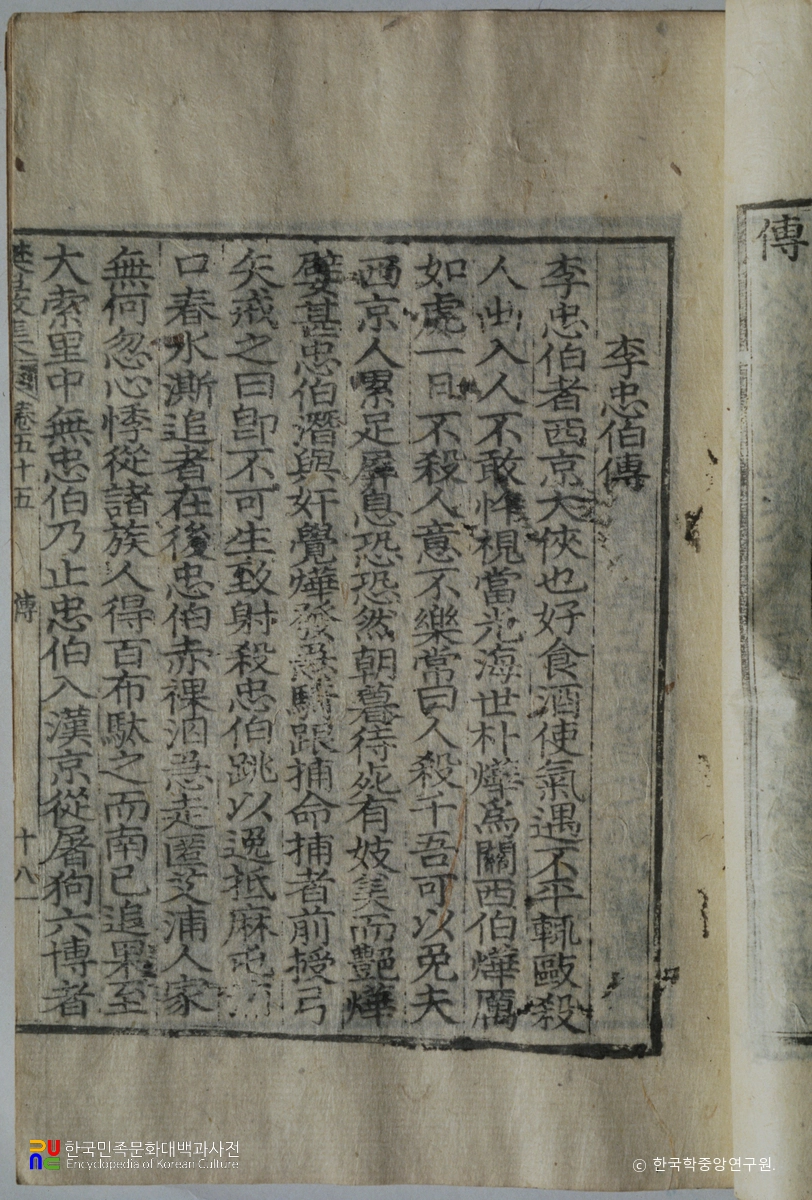 傳
李忠伯傳
李忠伯者西京大俠也好食酒使氣遇不平輒敺殺
人出入人不敢忤視當光海世朴燁爲關西伯燁厲
如虎一日不殺人意不樂常曰人殺千吾可以免夫
西京人累足屛息恐恐然朝暮待死有妓美而艶燁
嬖甚忠伯潛與奸覺燁發悬騎跟捕命捕者前授弓
矢戒之曰卽不可生致射殺忠伯跳以逸抵麻屯
口春水澌追者在後忠伯赤裸泅急走匿芝浦人家
無何忽心悸從諸族人得百布駄之而南已追果至
大索里中無忠伯乃止忠伯入漢京從屠狗六博者
卷五十五 傳 十八
한국민족문화대백과사전
Encyclopedia of Korean Culture
© 한국학중앙연구원.